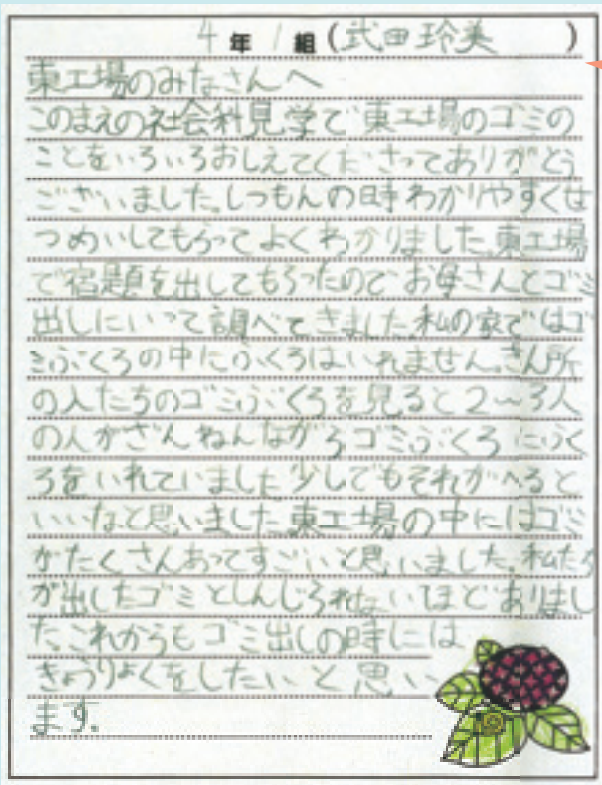 4年1組(武田玲美)
東工場のみなさんへ
このまえの社会科見学で東工場のゴミの
ことをいろいろおしえてくださってありがとう
ございました。しつもんの時わかりやすくせ
つめいしてもらってよくわかりました。東工場
で宿題を出してもらったのでお母さんとゴミ
出しにいって調べてきました。私の家ではゴ
ミぶくろの中にふくろはいれません。きん所
の人たちのゴミぶくろを見ると2〜3人
の人がざんねんながらゴミぶくろにふく
ろをいれていました少しでもそれがへると
いいなと思いました。東工場の中にはゴミ
がたくさんあってすごいと思いました。私たち
が出したゴミとしんじられないほどありまし
た。これからもゴミ出しの時には
きょうりょくをしたいと思い
ます。